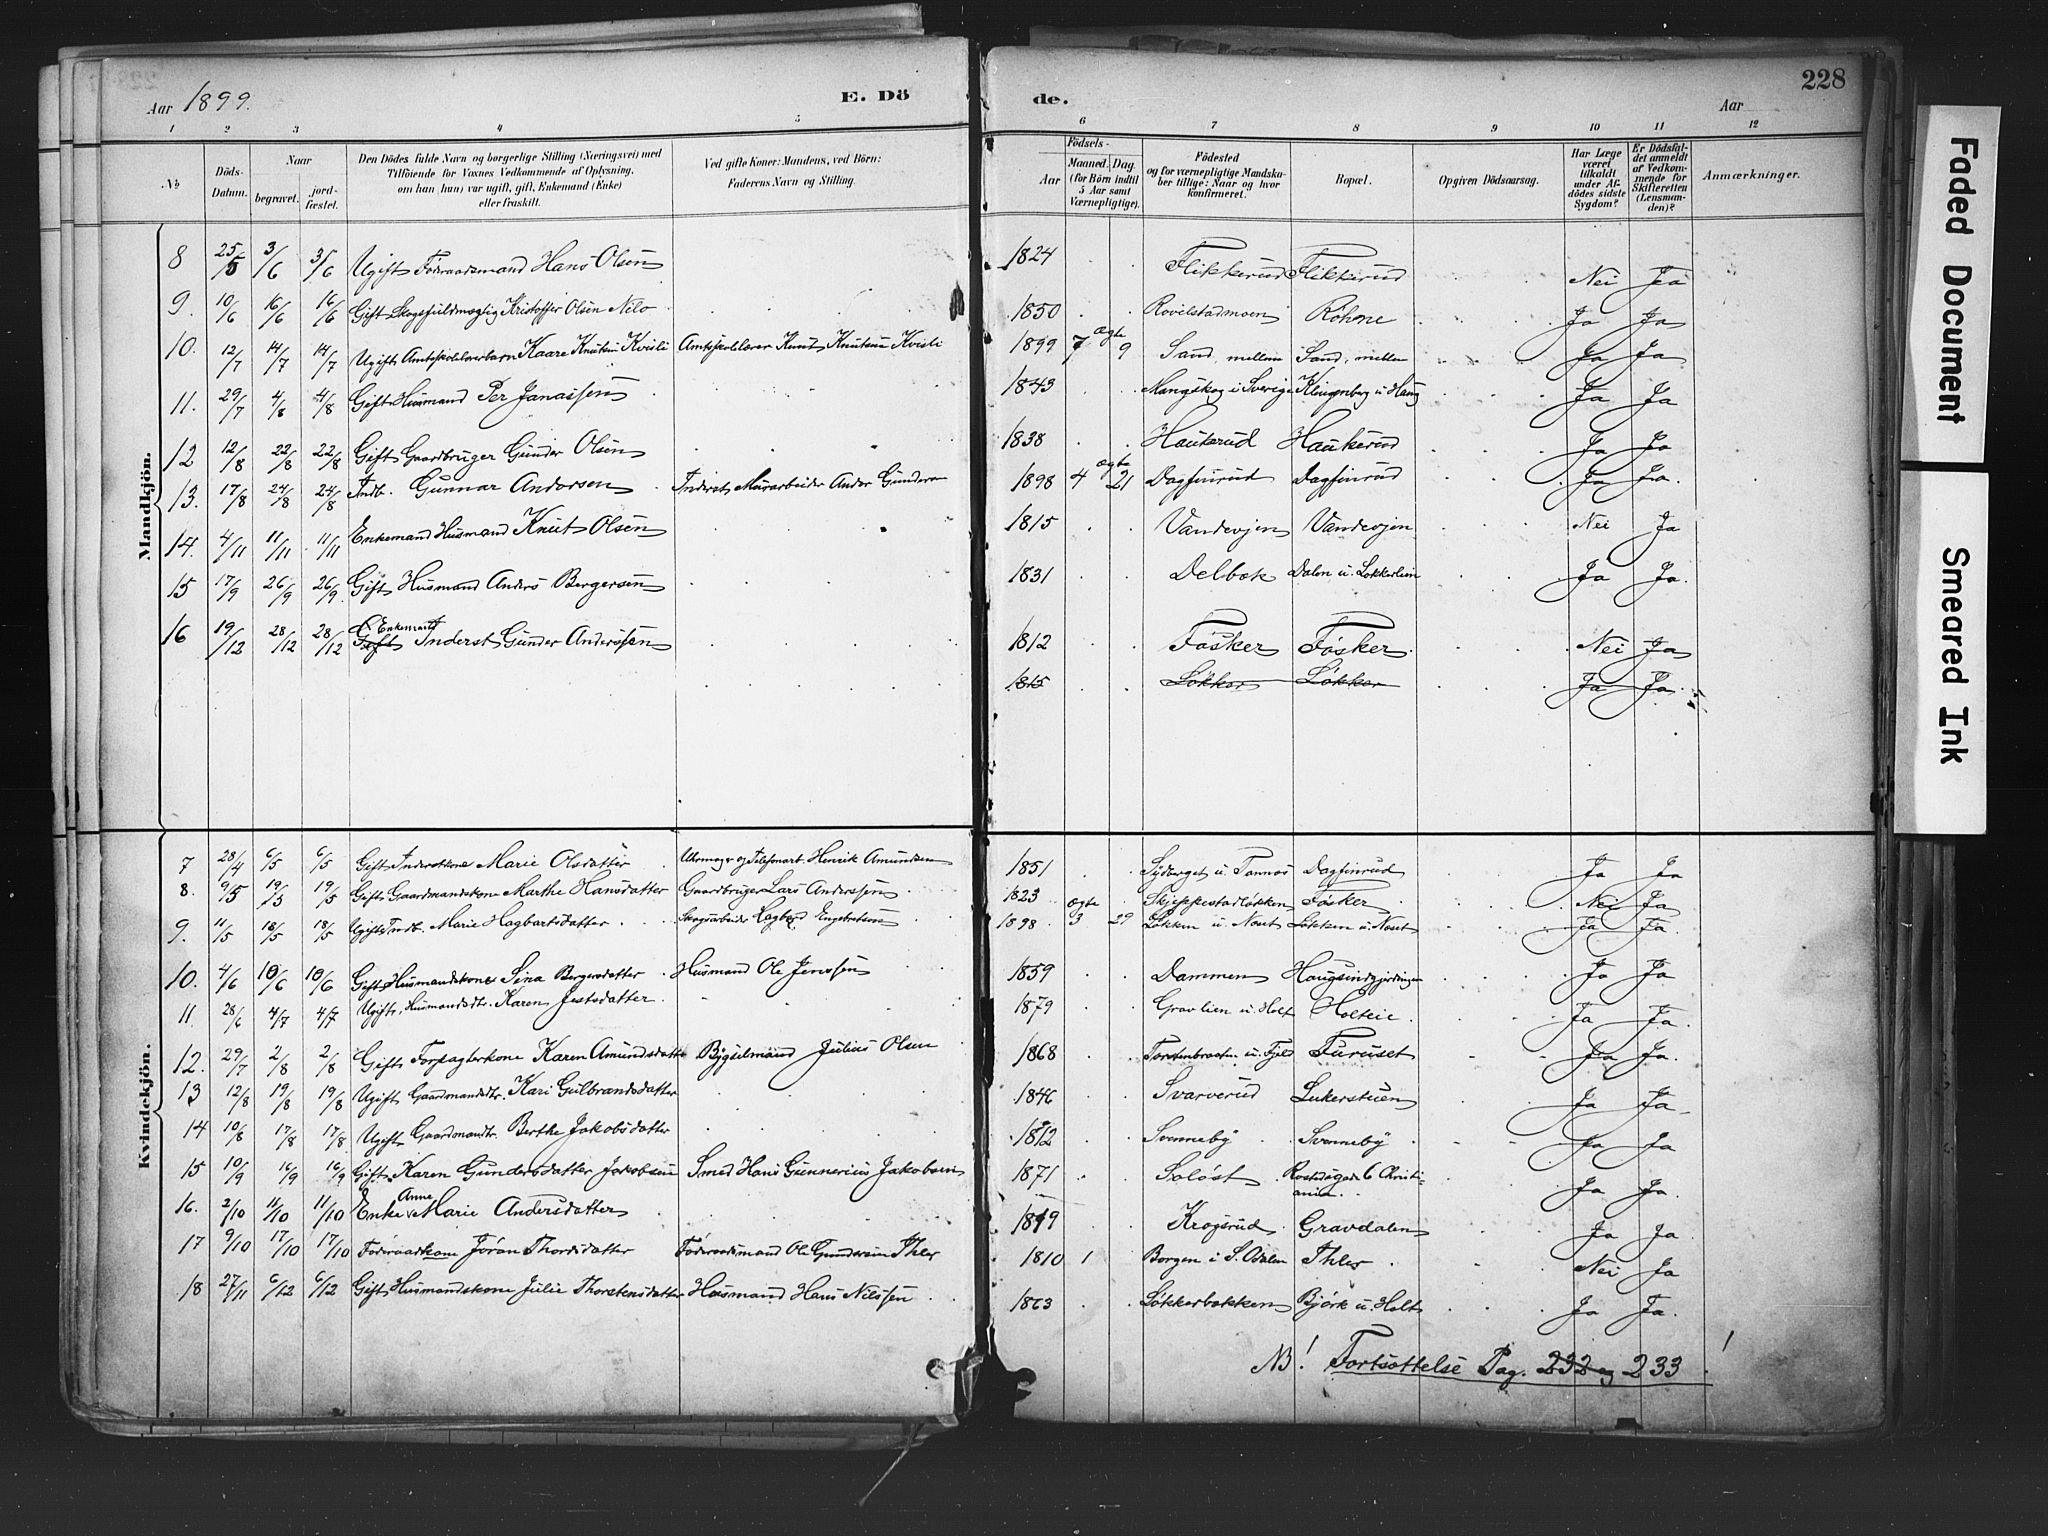 Aar 1899. E. Dö de. Aar 228
1 2 3 4 5 6 7 8 9 10 11 12
№ Döds-Datum. Naar begravet. jord-fæstet. Den Dödes fulde Navn og borgerlige Stilling (Næringsvei) med Tilföiende for Voxnes Vedkommende af Oplysning, om han (hun) var ugift, gift, Enkemand (Enke) eller fraskilt. Ved gifte Koner: Mandens, ved Börn: Faderens Navn og Stilling. Födsels- Aar Maaned. Dag. (for Börn indtil 5 Aar samt Værnepligtige). Födested og for værnepligtige Mandskaber tillige: Naar og hvor konfirmeret. Bopæl. Opgiven Dödsaarsag. Har Læge været tilkaldt under Afdödes sidste Sygdom? Er Dödsfaldet anmeldt af Vedkommende for Skifteretten (Lensmanden)? Anmærkninger.
Mandkjön.
8 25/5 3/6 3/6 Ugift Föderaadsmand Hans Olsen 1824 Flikkerud Flikkerud Nei Ja
9. 10/6 16/6 16/6 Gift Skogsfuldmægtig Kristoffer Olsen Nilo 1850 Rovelstadmoen Röhne Ja Ja
10. 12/7 14/7 14/7 Ugift Amtskolelærerbarn Kaare Knutsen Kvisli Amtskolelærer Knut Knutsen Kvisli 1899 7 ægte 9 Sand, mellem Sand, mellem Ja Ja
11. 29/7 4/8 4/8 Gift Husmand Per Janassen 1843 Mangskog i Sverige Klingenberg u Haug Ja Ja
12 12/8 22/8 22/8 Gift Gaardbruger Gunder Olsen 1838 Haukerud Haukerud Ja Ja
13. 17/8 24/8 24/8 Indb. Gunnar Andersen Inderst Murarbeider Ander Gundersen 1898 4 ægte 21 Dagfinrud Dagfinrud Ja Ja
14. 4/11 11/11 11/11 Enkemand Husmand Knut Olsen 1815 Vandevjen Vandevjen Nei Ja
15 17/9 26/9 26/9 Gift Husmand Anders Bergersen 1831 Delbæk Dalen u. Løkkerlien Ja Ja.
16 19/12 28/12 28/12 Gift Enkemand Inderst Gunder Anderssen 1812 Fösker Fösker Nei Ja
1815 Løkker Løkker Ja Ja
Kvindekjön.
7 28/4 6/5 6/5 Gift Inderstkone Marie Olsdatter Uhrmager og Telefonarb. Henrik Amundsen 1851 Sydberget u. Tannæs Dagfinrud Ja Ja
8. 9/5 19/5 19/5 Gift Gaardmandskone Marthe Hansdatter Gaardbruger Lars Anderssen 1823 Skjeppestadløkken Fösker Nei Ja
9. 11/5 18/5 18/5 Ugift Indb. Marie Hagbartsdatter Skogsarbeider Hagbard Engebretsen 1898 ægte 3 29 Løkken u Næset Løkken u. Næset Ja Ja.
10. 4/6 10/6 10/6 Gift Husmandskone Sina Bergersdatter Husmand Ole Jenssen 1859 Dammen Haugsindgjerdingen Ja Ja
11 28/6 4/7 4/7 Ugift, Husmandsdtr. Karen Jestsdatter 1879 Gravlien u. Holt Holteie Ja Ja.
12. 29/7 2/8 2/8 Gift Forpagterkone Karen Amundsdatter Bygselmand Julius Olsen 1868 Torstenbraaten u. Fjeld Furuset Ja Ja.
13 12/8 19/8 19/8 Ugift Gaardmandsdtr. Kari Gulbrandsdatter 1846 Svarverud Lukerstuen Ja Ja
14 10/8 17/8 17/8 Ugift Gaardmandtr. Berthe Jakobsdatter 1812 Svenneby Svenneby Ja Ja
15 10/9 16/9 16/9 Gift Karen Gundersdatter Jakobsen Smed Hans Gunnerius Jakobsen 1871 Soløst Rostedsgade 6 Christiania Ja Ja.
16. 2/10 11/10 11/10 Enke Anne Marie Andersdatter 1819 Krogsrud Gravdalen Ja Ja
17 9/10 17/10 17/10 Föderaadkone Jøran Thordsdatter Föderaadsmand Ole Gundersen Ihler 1810 1 Borgen i S. Odalen Ihler Nei Ja
18 27/11 6/12 6/12 Gift Husmandskone Julie Thorstensdatter Husmand Hans Nilssen 1863 Løkkerbakken Björk u. Holt Ja Ja.
NB! Fortsættelse Pag. 232 og 233!
Faded Document
Smeared Ink